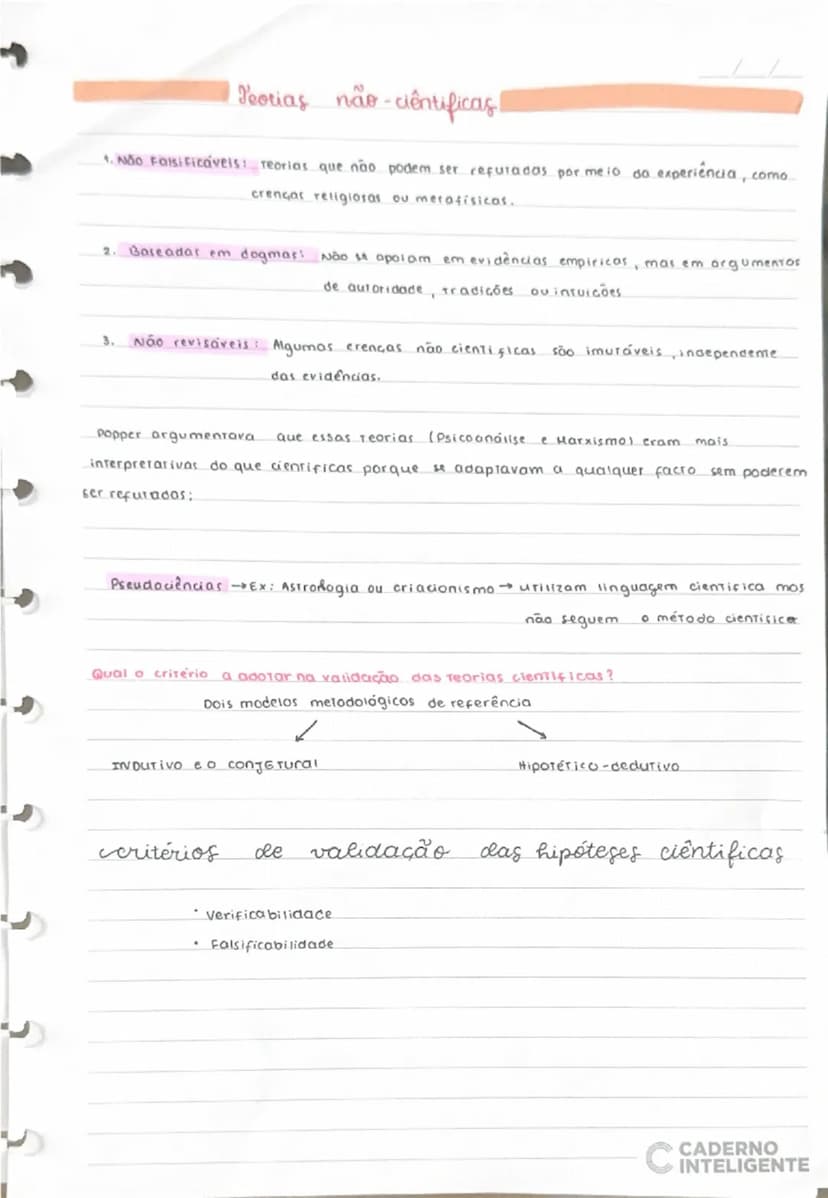 Teorias não-ciêntificas
1. Não Falsificáveis: Teorias que não podem ser refutadas por meio da experiência, como
crenças religiosas ou metafísicas.
2. Baseadas em dogmas: Não se apoiam em evidências empíricas, mas em argumentos
de autoridade, tradições ou intuições
3. Não revisáveis: Algumas crenças não científicas são imutáveis, independeme
das evidências.
Popper argumentava que essas teorias (Psicoanálise e Marxismo) eram mais
interpretativas do que científicas porque se adaptavam a qualquer facto sem poderem
ser refutadas;
Pseudociências → Ex: Astrologia ou criacionismo → utilizam linguagem científica mas
não seguem o método científico
Qual o critério a adotar na validação das teorias científicas?
Dois modelos metodológicos de referência
INDUTIVO e o conjetural
Hipotético-dedutivo
critérios de validação das hipóteses ciêntificas
• Verificabilidade
• Falsificabilidade
CADERNO
INTELIGENTE